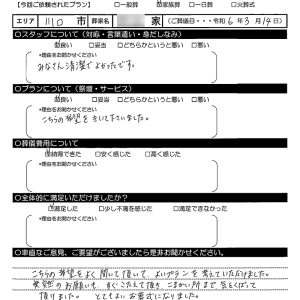 【今回ご依頼されたプラン】 □一般葬 ☑家族葬 □一日葬 □火葬式
エリア 川口 市 葬家名 家 (ご葬儀日・・・令和6年3月14日)
〇スタッフについて(対応・言葉遣い・身だしなみ)
☑良い □妥当 □どちらかというと悪い □悪い
*理由をお聞かせください
みなさん清潔でよかったです。
〇プランについて(祭壇・サービス)
☑良い □妥当 □どちらかというと悪い □悪い
*理由をお聞かせください
こちらの希望をきいて下さいました。
〇葬儀費用について
☑納得できた □安く感じた □高く感じた
*理由をお聞かせください
〇全体的に満足いただけましたか?
☑満足した □少し不満を感じた □満足できなかった
*理由をお聞かせください
〇率直なご意見、ご要望がございましたら是非お聞かせください。
こちらの希望をよく聞いて頂いて、よいプランを考えていただけました。
のお願いも、すぐこたえて頂き、こまかい所まで気をくばって
頂けました。とてもよいお葬式になりました。